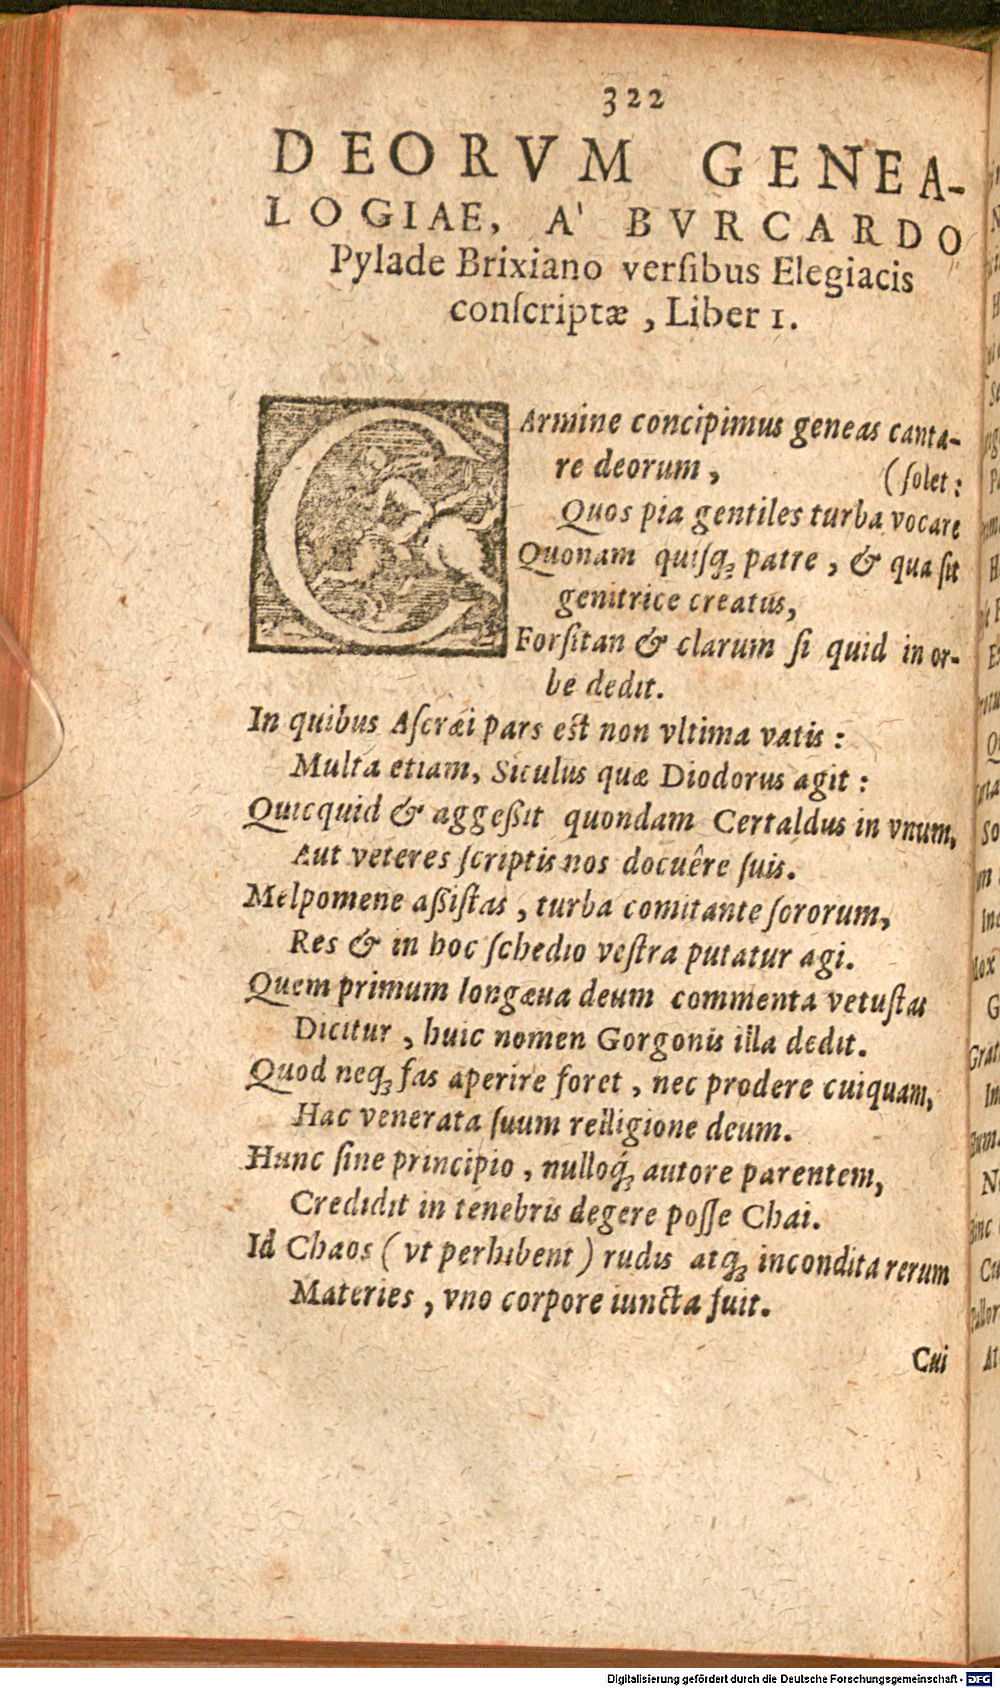 322
DEORVM GENEA-
LOGIAE, A' BVRCARDO
Pylade Brixiano verſibus Elegiacis
conſcriptæ, Liber 1.
CArmine concipimus geneas canta-
re deorum, (ſolet:
Quos pia gentiles turba vocare
Quonam quiſq; patre, & qua ſit
genitrice creatus,
Forſitan & clarum ſi quid in or-
be dedit.
In quibus Aſcræi pars est non vltima vatis:
Multa etiam, Siculus quæ Diodorus agit:
Quicquid & aggeßit quondam Certaldus in vnum,
Aut veteres ſcriptis nos docuêre ſuis.
Melpomene aßiſtas, turba comitante ſororum,
Res & in hoc ſchedio veſtra putatur agi.
Quem primum longæua deum commenta vetuſtas
Dicitur, huic nomen Gorgonis illa dedit.
Quod neq; fas aperire foret, nec prodere cuiquam,
Hac venerata ſuum relligione deum.
Hunc ſine principio, nulloq́; autore parentem,
Credidit in tenebris degere poſſe Chai.
Id Chaos (vt perhibent) rudis atq; incondita rerum
Materies, vno corpore iuncta fuit.
Cui
Digitalisierung gefördert durch die Deutsche Forschungsgemeinschaft - DFG